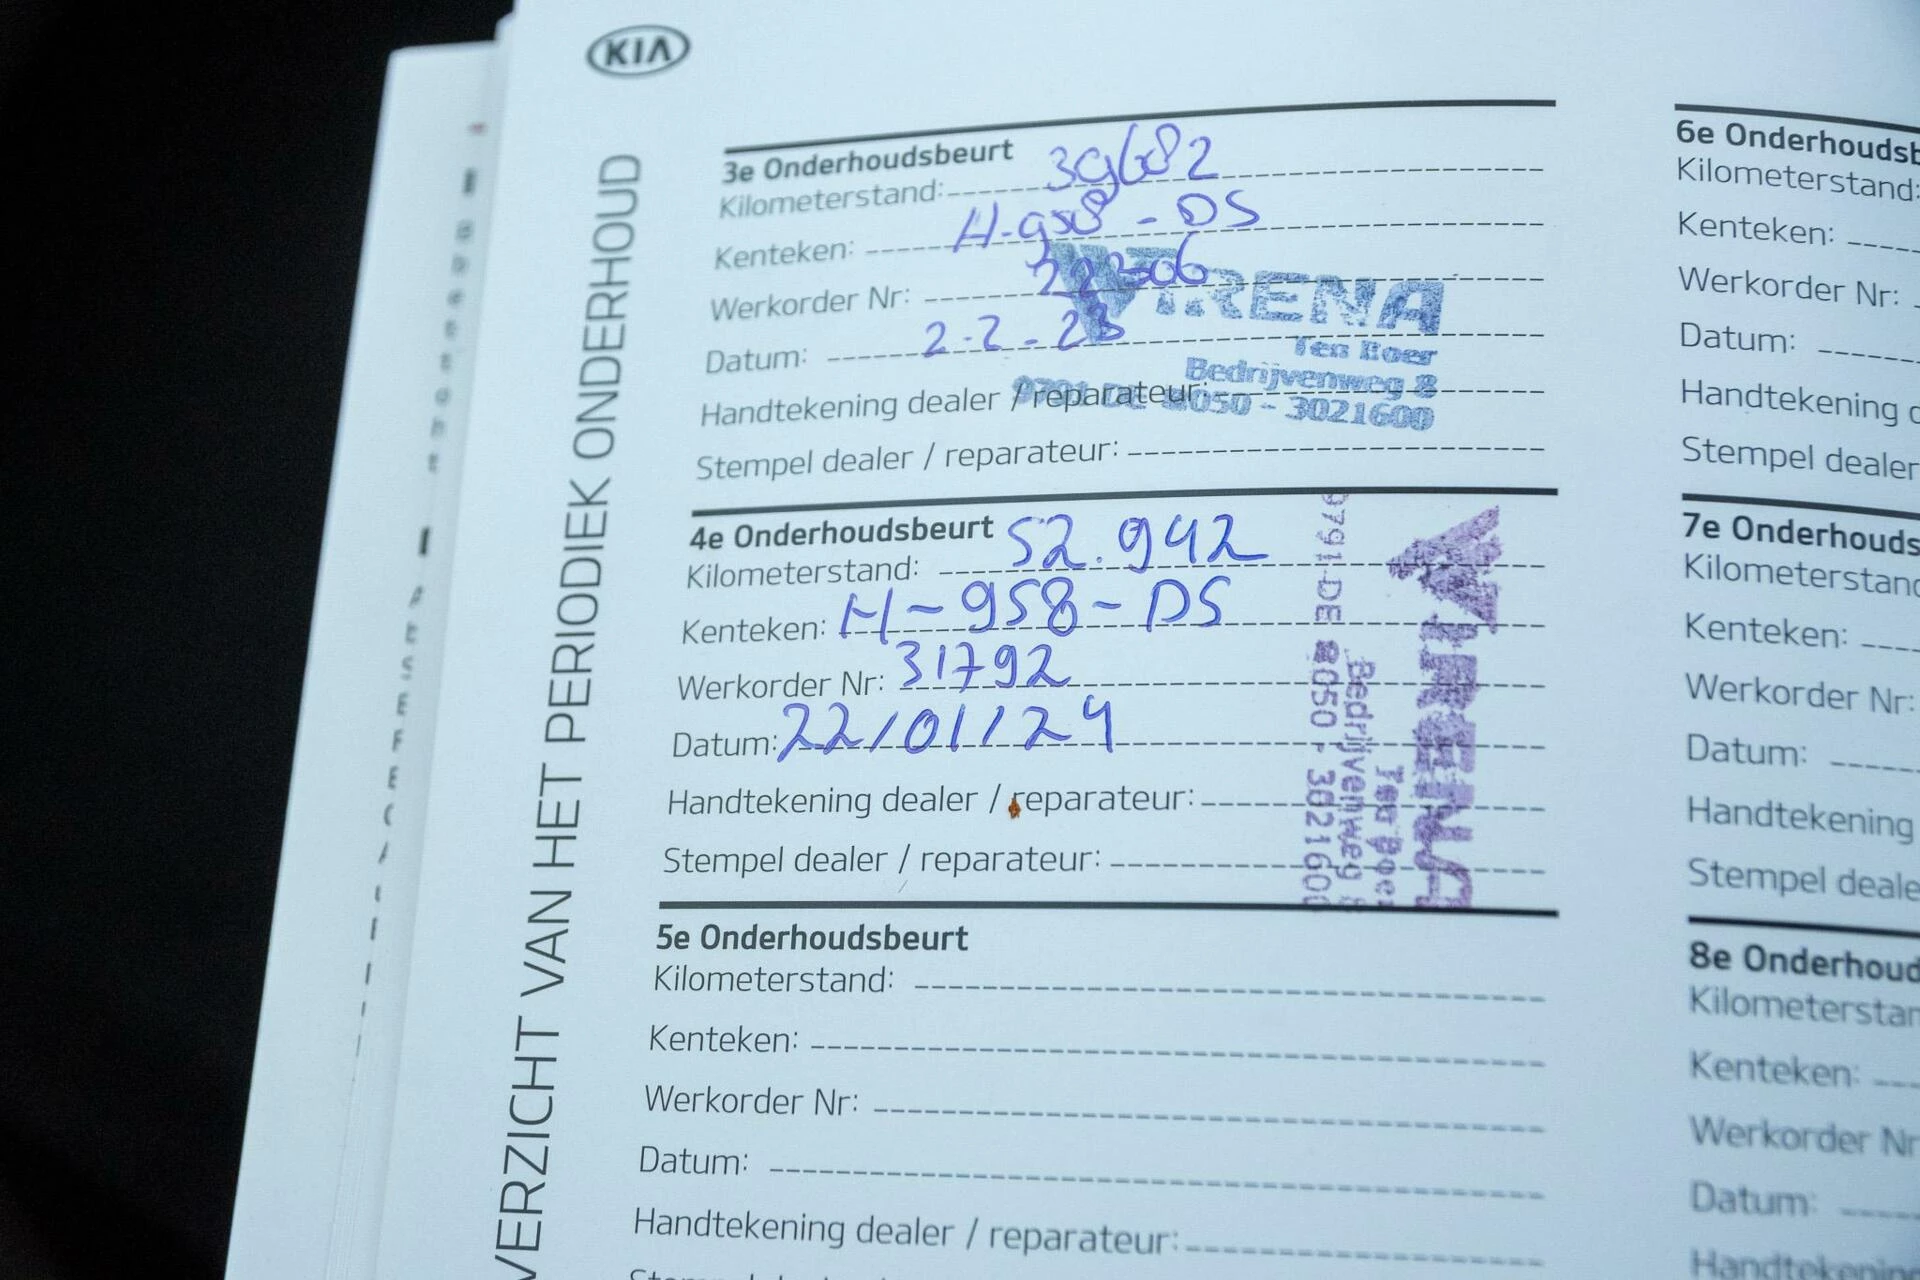 KIA
VERZICHT VAN HET PERIODIEK ONDERHOUD
3e Onderhoudsbeurt
Kilometerstand: 39682
Kenteken: H-958-DS
Werkorder Nr:
Datum: 2-2-23
Handtekening dealer / reparateur:
Stempel dealer / reparateur:
VIRENA
Ten Boer
Bedrijvenweg 8
9791 DE 050 - 3021600
4e Onderhoudsbeurt
Kilometerstand: 52.942
Kenteken: H-958-DS
Werkorder Nr: 31792
Datum: 22/01/24
Handtekening dealer / reparateur:
Stempel dealer / reparateur:
VIRENA
Ten Boer
Bedrijvenweg 8
9791 DE 050 - 3021600
5e Onderhoudsbeurt
Kilometerstand:
Kenteken:
Werkorder Nr:
Datum:
Handtekening dealer / reparateur:
6e Onderhoudsb
Kilometerstand:
Kenteken:
Werkorder Nr:
Datum:
Handtekening d
Stempel dealer
7e Onderhouds
Kilometerstand
Kenteken:
Werkorder Nr:
Datum:
Handtekening
Stempel deale
8e Onderhoud
Kilometerstan
Kenteken:
Werkorder Nr
Datum:
Handtekening